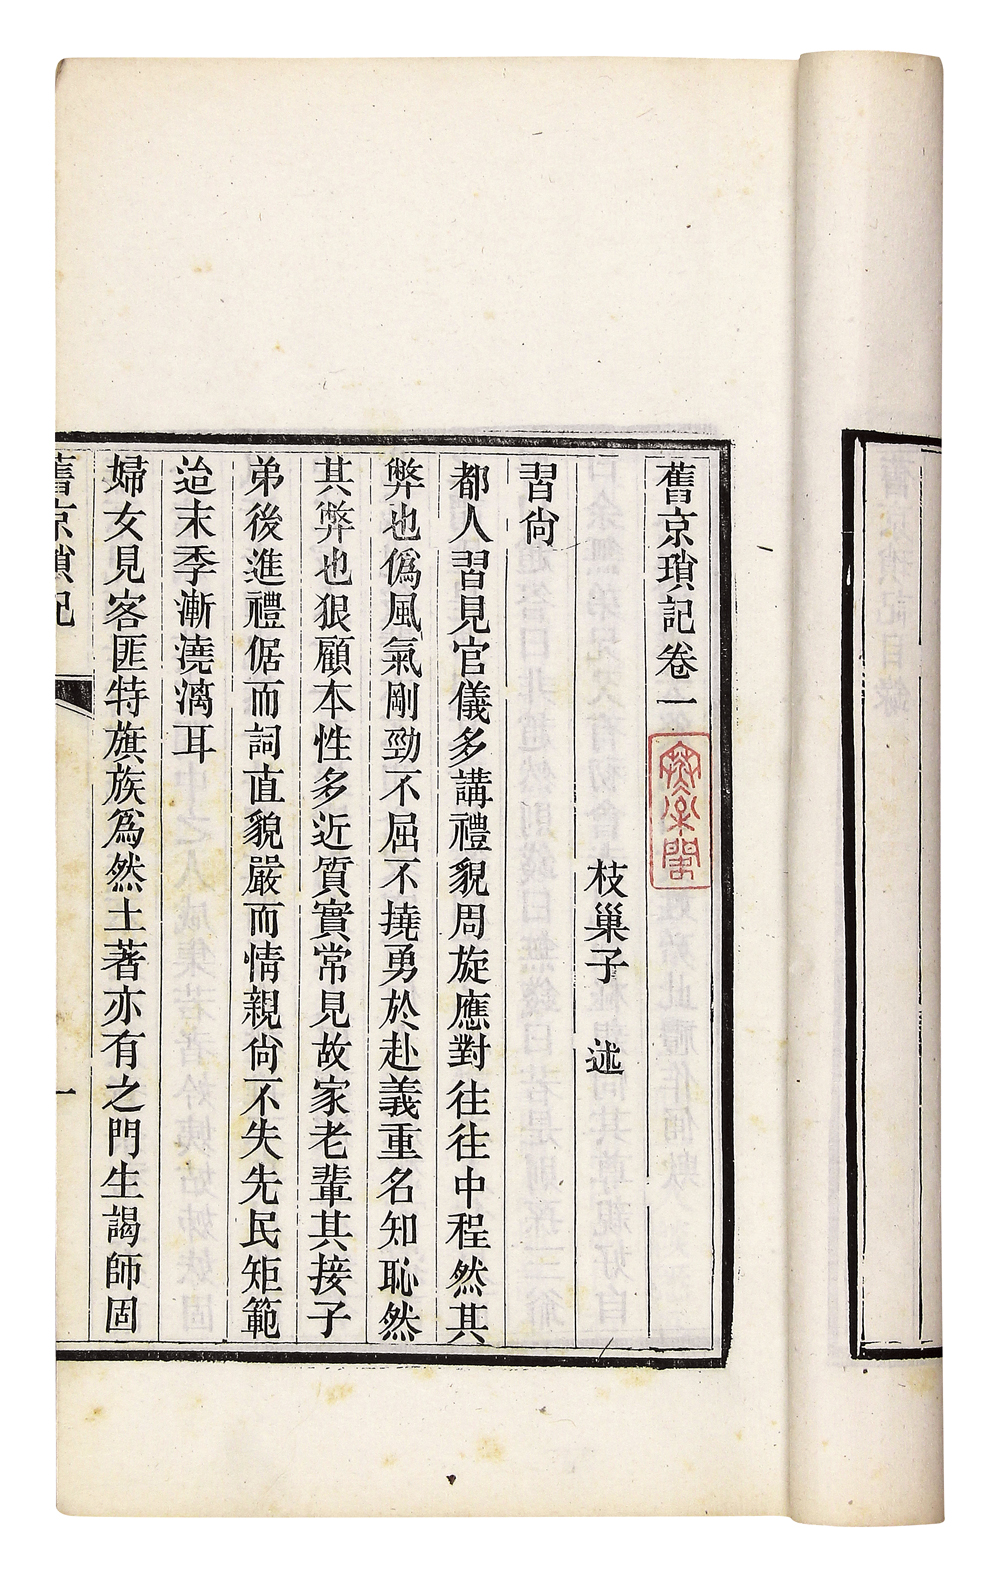 舊京瑣記卷一
枝巢子 述
習尚
都人習見官儀多講禮貌周旋應對往往中程然其
弊也僞風氣剛勁不屈不撓勇於赴義重名知恥然
其弊也狠顧本性多近質實常見故家老輩其接子
弟後進禮倨而詞直貌嚴而情親尚不失先民矩範
迨末季漸澆漓耳
婦女見客匪特旗族爲然土著亦有之門生謁師固
舊京瑣記
一